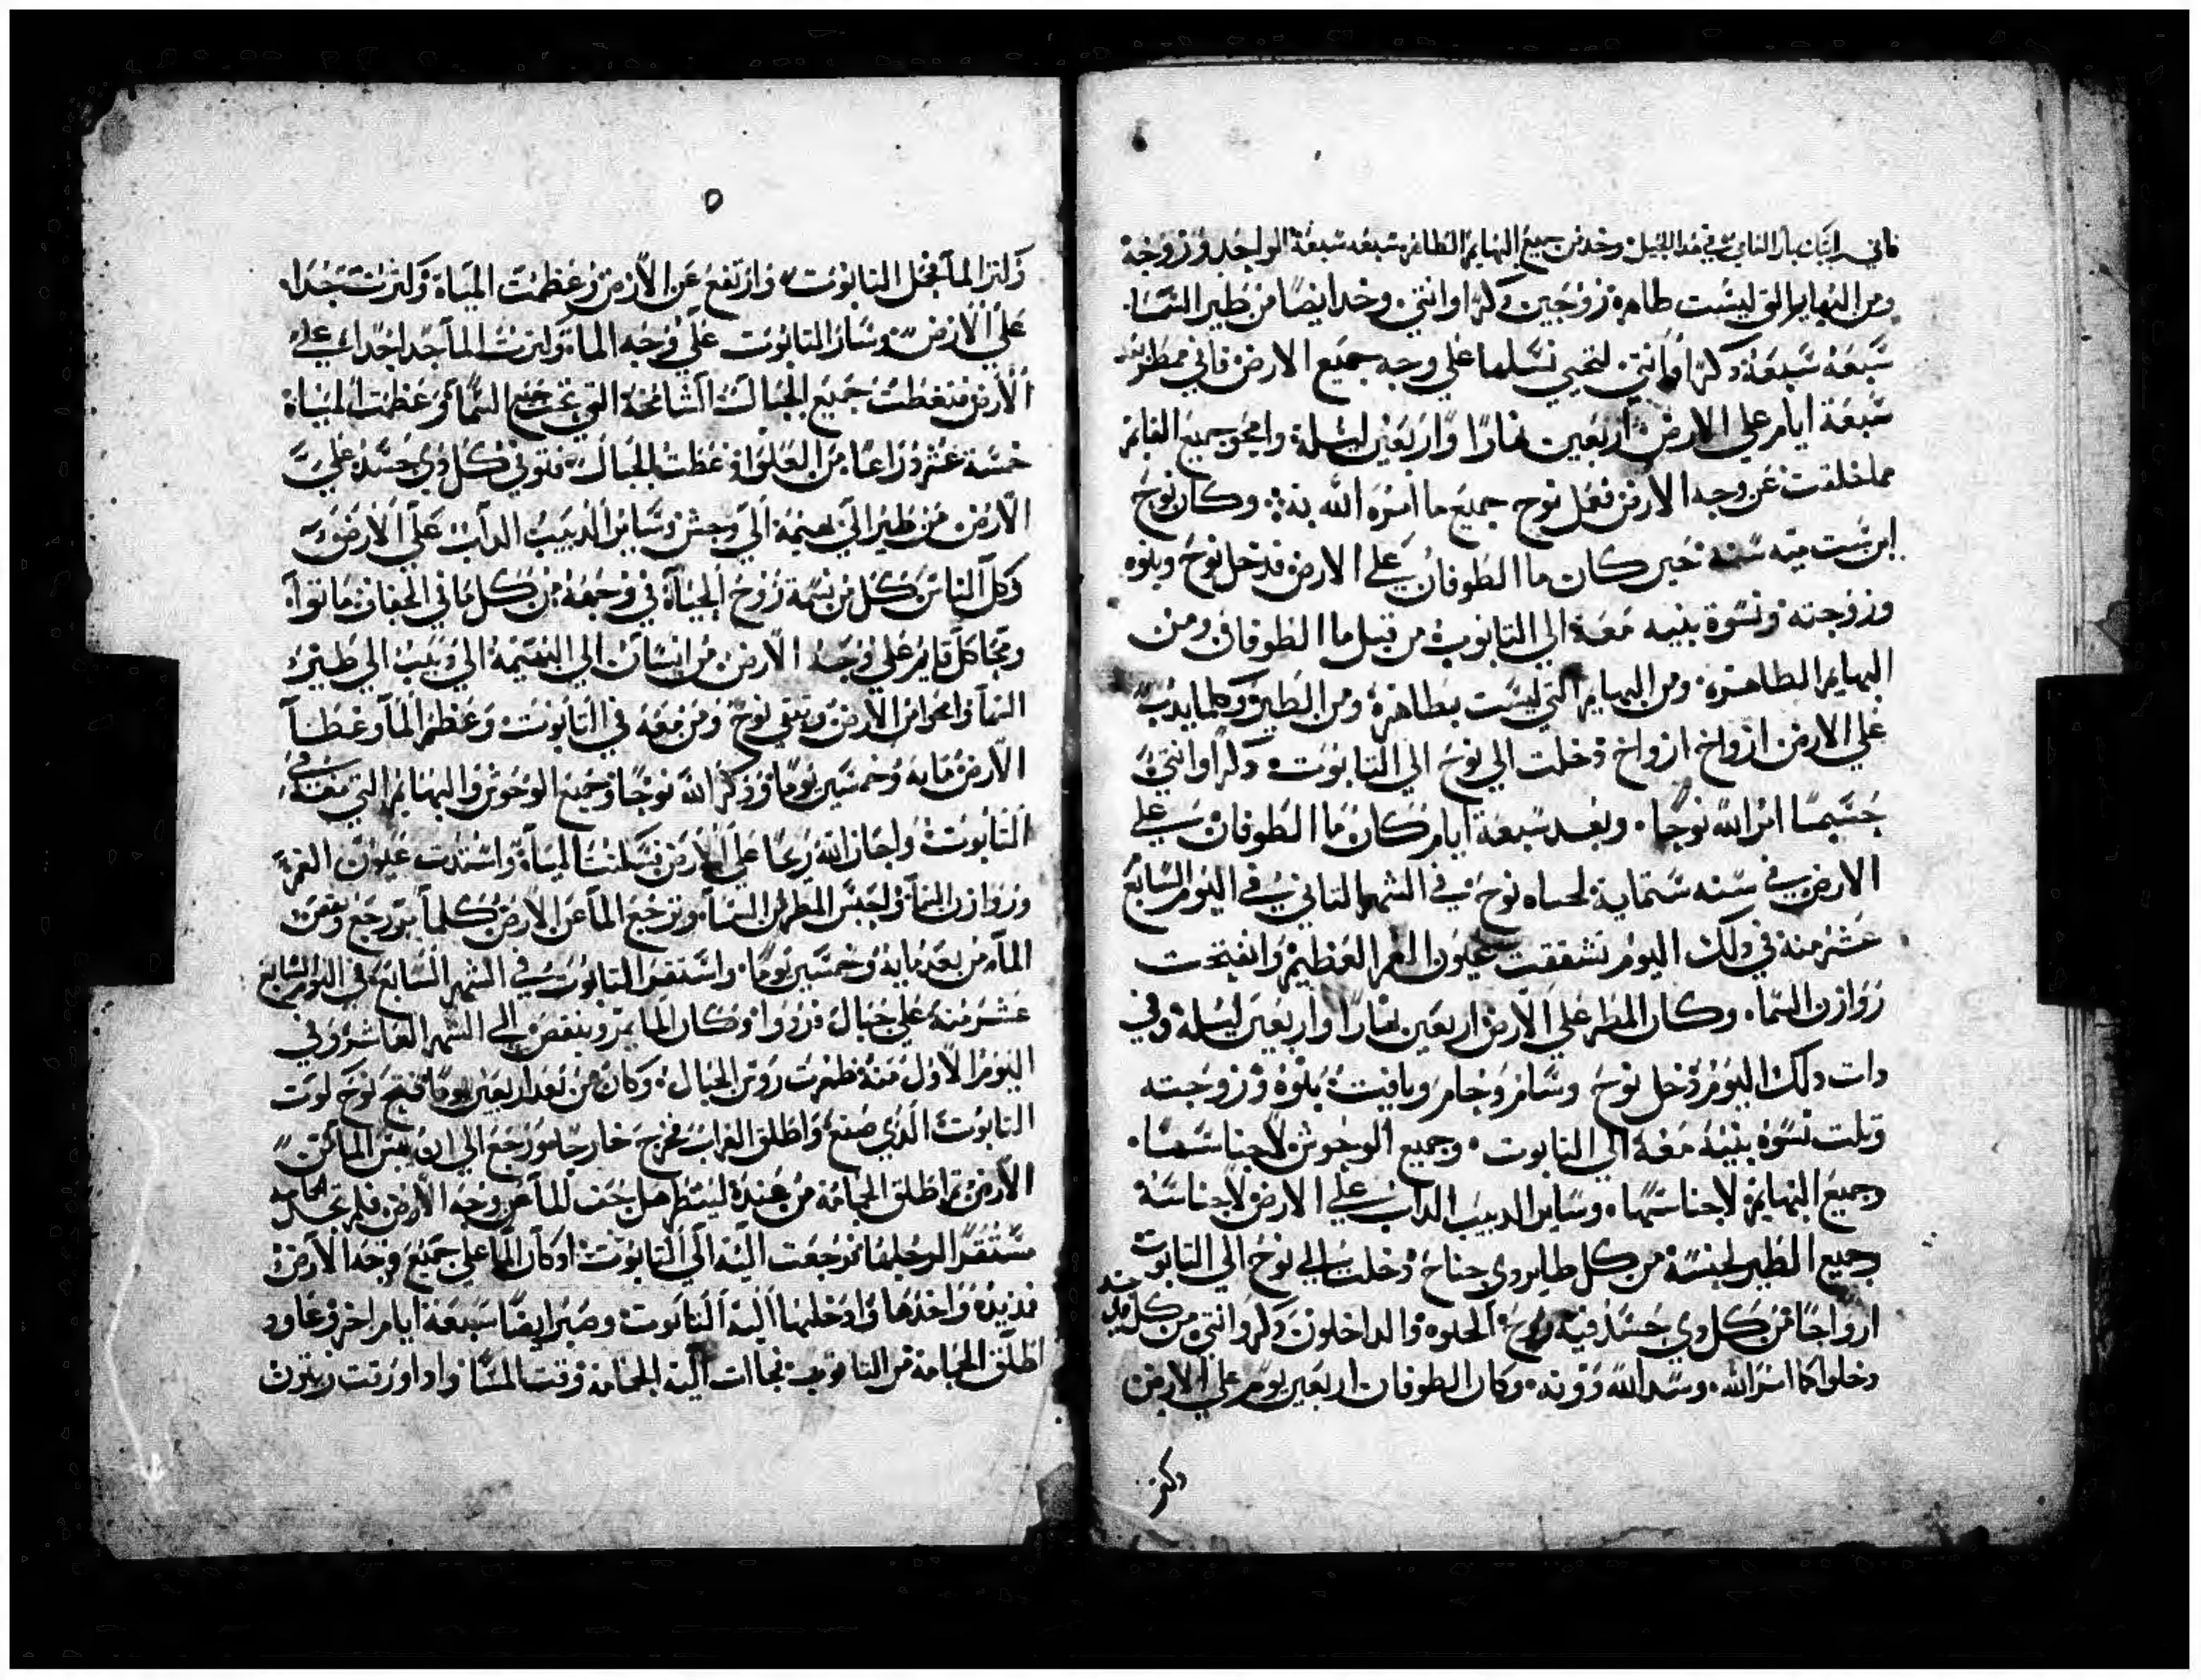 فاني رايتك بارا لقاي في هدا الجيل وخد من جميع البهايم الطاهره سبعه سبعة الواحد وزوجة
ومن البهايم التي ليست طاهرة زوجين دكرا وانثي وخد ايضا من طير السما
سبعة سبعة دكرا وانتي لتحيي نسلها علي وجه جميع الارض فاني ممطر بعد
سبعة ايام علي الارض اربعين نهارا واربعين ليلة وامحو جميع القايم
مما خلقت عن وجه الارض فعمل نوح جميع ما امره الله به وكان نوح
ابن ست ميه سنه حين كان ما الطوفان علي الارض فدخل نوح وبنوه
وزوجته ونسوة بنيه معة الي التابوت من قبل ما الطوفان ومن
البهايم الطاهرة ومن البهايم التي ليست بطاهرة ومن الطير وكلما يدب
علي الارض ازواج ازواج دخلت الي نوح الي التابوت دكرا وانتي
حسبما امر الله نوحا وبعد سبعة ايام كان ما الطوفان علي
الارض في سنه ستماية لحياه نوح في الشهر التاني في اليوم السابع
عشر منة في دلك اليوم تشققت عيون الغمر العظيم وانفتحت
روازن السما وكان المطر علي الارض اربعين نهارا واربعين ليلة وفي
دات دلك اليوم دخل نوح وسام وحام ويافيت بنوه وزوجته
وتلت نسوة بنية معة الي التابوت وجميع الوحوش لاجناسها
وجميع البهايم لاجناسها وساير الدبيب الداب علي الارض لاجناسة
وجميع الطير لجنسة من كل طاير دي جناح دخلت الي نوح الي التابوت
ازواجا من كل دي جسد فية روح الحيوه والداخلون دكر وانتي من كل دي جسد
دخلوا كما امر الله وسد الله دونه وكان الطوفان اربعين يوم علي الارض
وكتر الما فحمل التابوت وارتفع عن الارض وعظمت المياة وكترت جدا
علي الارض وسار التابوت علي وجه الما وكترت الما جدا جدا علي
الارض فتغطت جميع الجبال الشامخة التي تحت جميع السما وعظمت المياة
خمسة عشر دراعا من العلو اد غطت الجبال فتوفي كل دي جسد علي
الارض من طير الي بهيمة الي وحش وساير الدبيب الداب علي الارض
وكل الناس كل من نسمة روح الحياة في وجهة من كل ما في الجفاف ماتوا
ومحا كل قايم علي وجه الارض من انسان الي البهيمة الي دبيب الي طير
السما وامحوا من الارض وبقي نوح ومن معه في التابوت وعظم الما وغطا
الارض ماية وخمسين يوما ودكر الله نوحا وجميع الوحوش والبهايم التي معه في
التابوت واجاز الله ريحا علي الارض فسكنت المياة واستدت عيون الغمر
وروازن السما واحبس المطر من السما ورجع الما عن الارض كلما مر رجع ونقص
الما من بعد ماية وخمسين يوما واستقر التابوت في الشهر السابع في اليوم السابع
عشر منة علي جبال قردوا وكان الما يمر وينقص الي الشهر العاشر وفي
اليوم الاول منة ظهرت روس الجبال وكان من بعد اربعين يوما فتح نوح كوت
التابوت الدي صنع واطلق الغراب فخرج خارجا ورجع الي ان يبس الما عن
الارض تم اطلق الحمامة من عندة لينظر هل جف الما عن وجه الارض فلم تجد الحمامه
مستقر الرجلها فرجعت الية الي التابوت اد كان الما علي جميع وجه الارض
فمد يده واخدها وادخلها الية التابوت وصبر ايضا سبعة ايام اخر وعاود
اطلق الحمامة من التابوت فجات الية الحمامة وقت المسا وادا ورقت زيتون
دكر